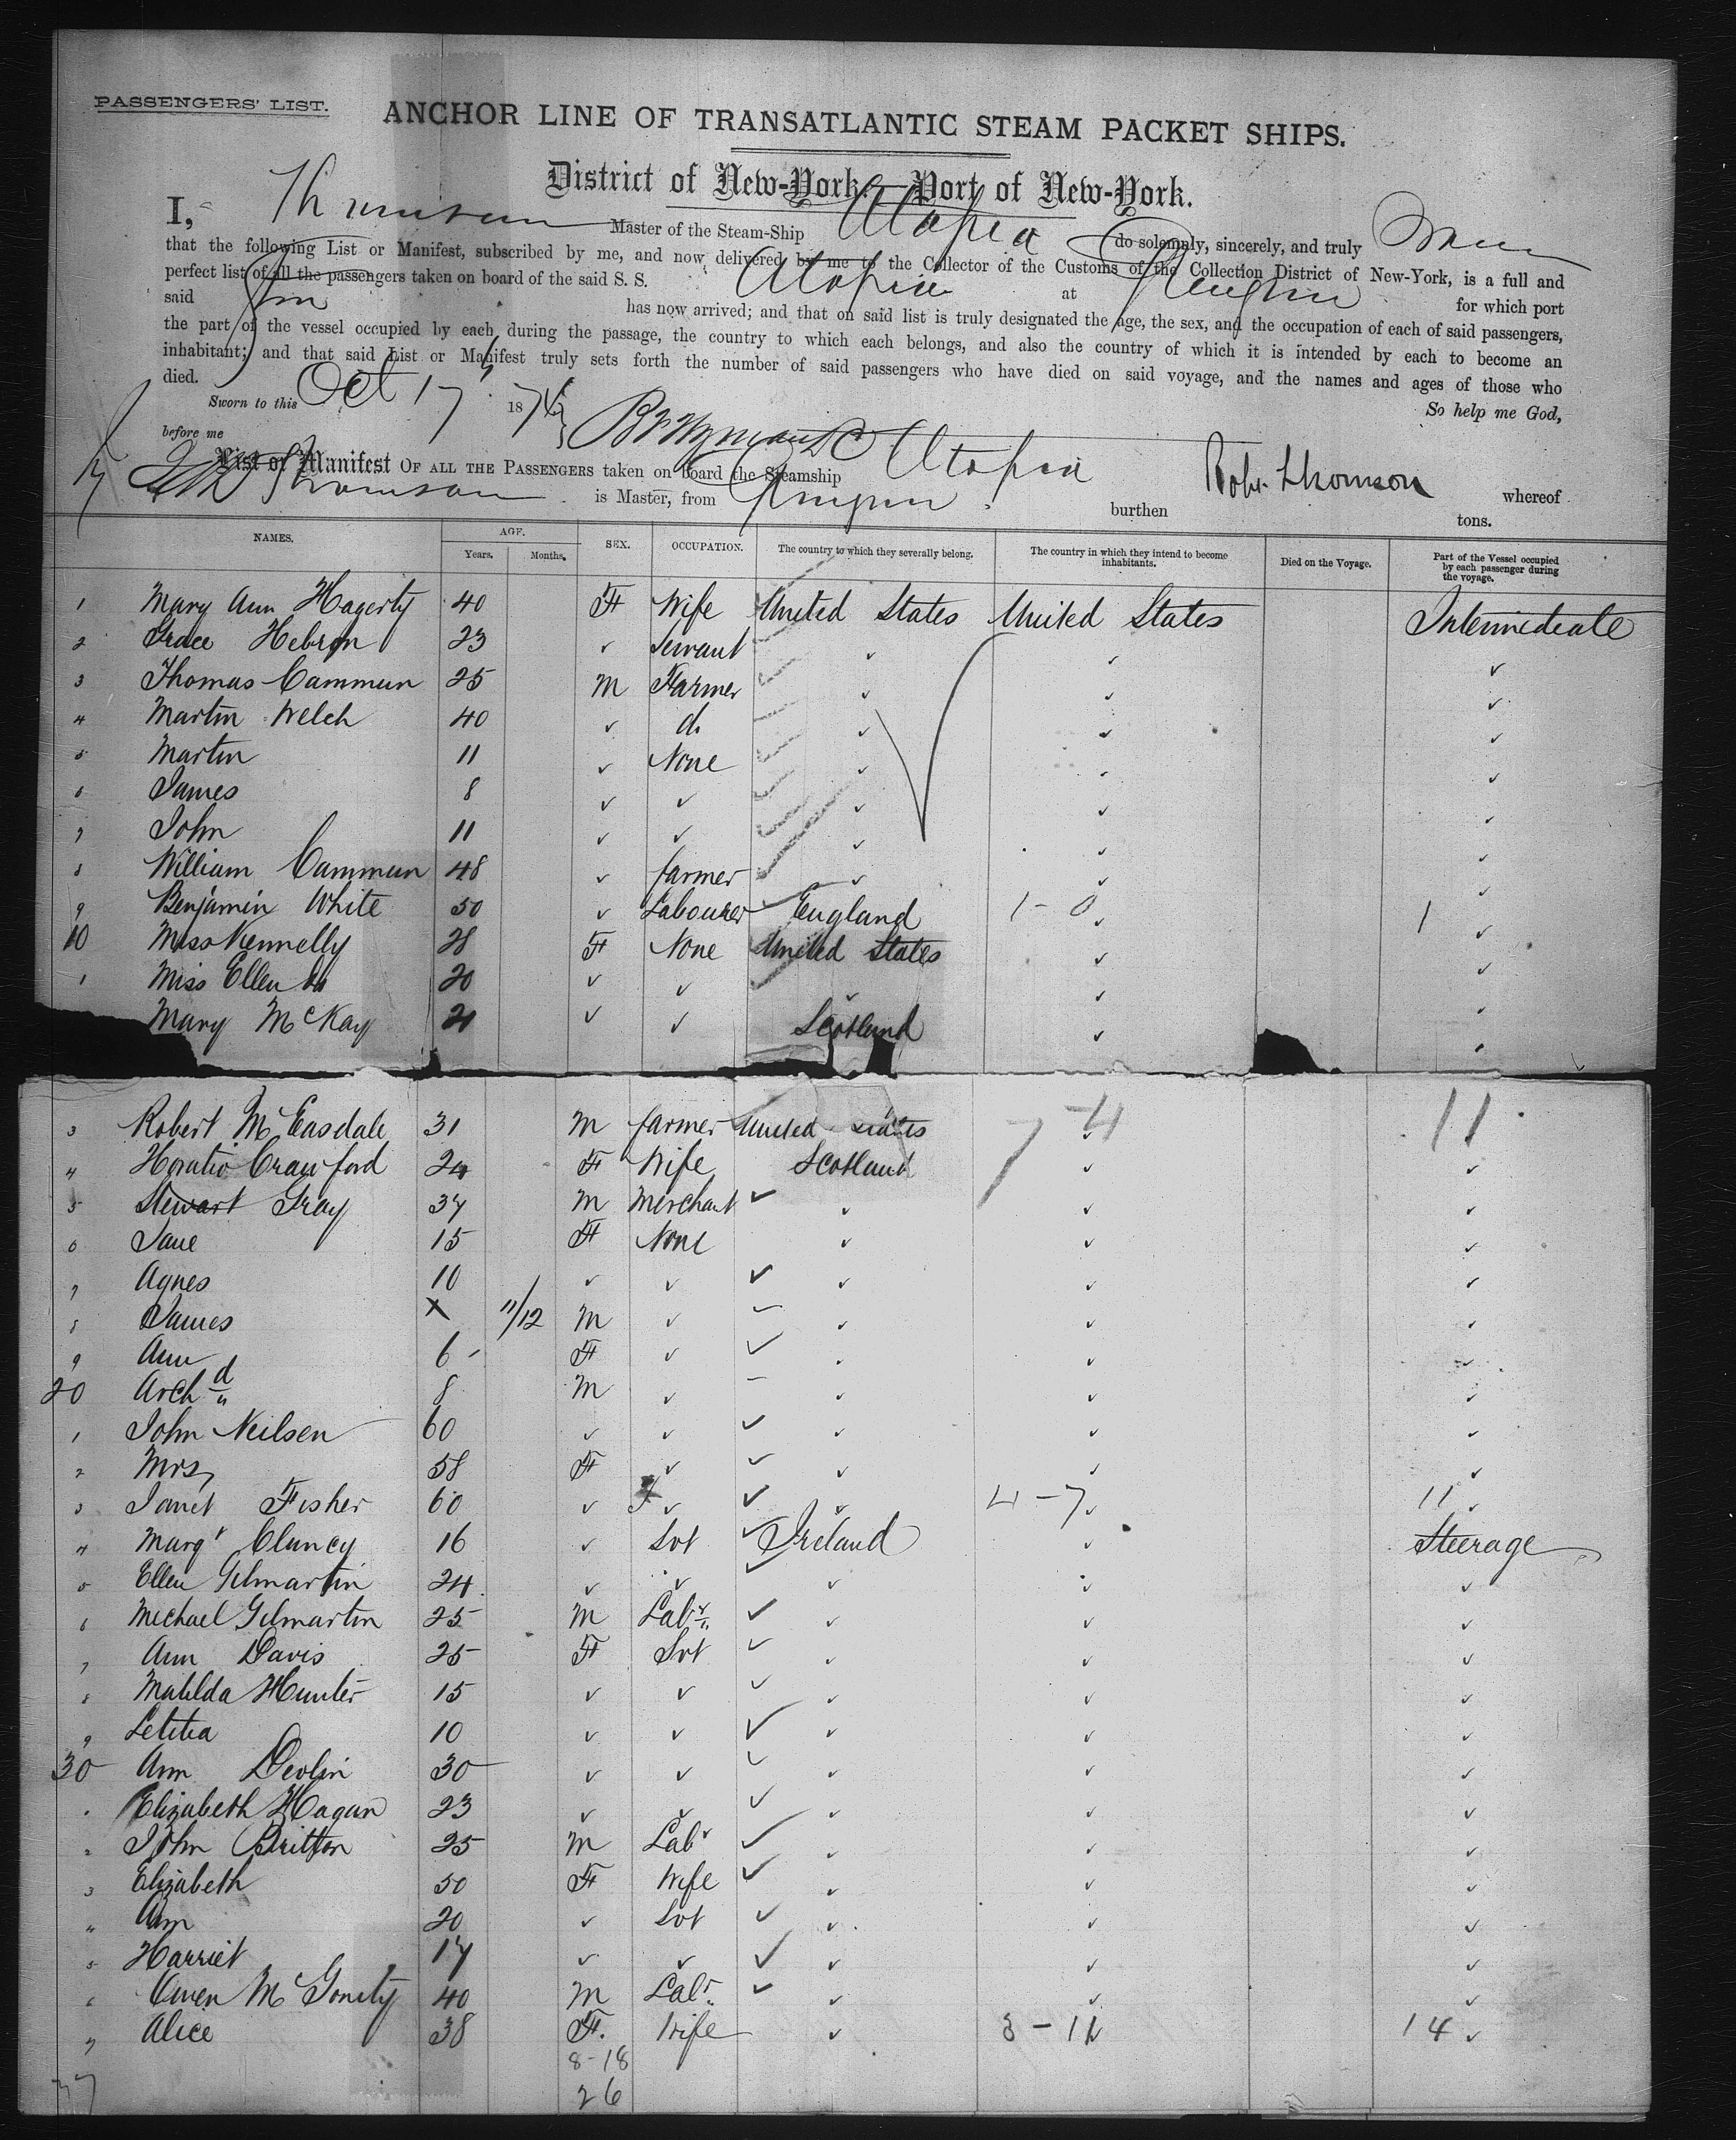 PASSENGERS' LIST.
ANCHOR LINE OF TRANSATLANTIC STEAM PACKET SHIPS.
District of New-York.—Port of New-York.
I, Thomson Master of the Steam-Ship Utopia do solemnly, sincerely, and truly Swear
that the following List or Manifest, subscribed by me, and now delivered by me to the Collector of the Customs of the Collection District of New-York, is a full and
perfect list of all the passengers taken on board of the said S. S. Utopia at for which port
said has now arrived; and that on said list is truly designated the age, the sex, and the occupation of each of said passengers,
the part of the vessel occupied by each during the passage, the country to which each belongs, and also the country of which it is intended by each to become an
inhabitant; and that said List or Manifest truly sets forth the number of said passengers who have died on said voyage, and the names and ages of those who
died. So help me God,
Sworn to this Oct 17 1876
before me
List or Manifest OF ALL THE PASSENGERS taken on board the Steamship Utopia Robt. Thomson whereof
Thomson is Master, from burthen tons.
NAMES. AGE. Years. Months. SEX. OCCUPATION. The country to which they severally belong. The country in which they intend to become inhabitants. Died on the Voyage. Part of the Vessel occupied by each passenger during the voyage.
1 Mary Ann Hagerty 40 F Wife United States United States Intermediate
2 Grace Hebron 23 ✓ Servant ✓ ✓ ✓
3 Thomas Cammeun 25 M Farmer ✓ ✓ ✓
4 Martin Welch 40 ✓ do ✓ ✓ ✓
5 Martin 11 ✓ None ✓ ✓ ✓
6 James 8 ✓ ✓ ✓ ✓ ✓
7 John 11 ✓ ✓ ✓ ✓ ✓
8 William Cammeun 48 ✓ farmer ✓ ✓ ✓
9 Benjamin White 50 ✓ Labourer England 1-0 ✓ 1 ✓
10 Miss Kennelly 28 F None United States ✓ ✓
1 Miss Ellen do 20 ✓ ✓ ✓ ✓ ✓
Mary McKay 21 ✓ ✓ Scotland ✓ ✓
3 Robert McEasdale 31 M farmer United States 7-4 ✓ 11
4 Horatio Crawford 24 F Wife Scotland ✓ ✓
5 Stewart Gray 37 M Merchant ✓ ✓ ✓
6 Jane 15 F None ✓ ✓ ✓
7 Agnes 10 ✓ ✓ ✓ ✓ ✓
8 James X 11/12 M ✓ ✓ ✓ ✓
9 Ann 6 F ✓ ✓ ✓ ✓
20 Archd 8 M ✓ ✓ ✓ ✓
1 John Neilsen 60 ✓ ✓ ✓ ✓ ✓
2 Mrs 58 F ✓ ✓ ✓ ✓
3 Janet Fisher 60 ✓ ✓ ✓ 4-7 ✓ 11 ✓
4 Margt Clancy 16 ✓ Svt Ireland ✓ Steerage
5 Ellen Gilmartin 24 ✓ ✓ ✓ ✓ ✓
6 Michael Gilmartin 25 M Labr ✓ ✓ ✓
7 Ann Davis 25 F Svt ✓ ✓ ✓
8 Matilda Hunter 15 ✓ ✓ ✓ ✓ ✓
9 Letitia 10 ✓ ✓ ✓ ✓ ✓
30 Ann Devlin 30 ✓ ✓ ✓ ✓ ✓
Elizabeth Hagan 23 ✓ ✓ ✓ ✓ ✓
2 John Britton 25 M Labr ✓ ✓ ✓
3 Elizabeth 50 F Wife ✓ ✓ ✓
4 Ann 20 ✓ Svt ✓ ✓ ✓
5 Harriet 17 ✓ ✓ ✓ ✓ ✓
6 Owen McGonity 40 M Labr ✓ ✓ ✓
7 Alice 38 F. Wife ✓ 3-11 ✓ 14 ✓
8-18
37 26